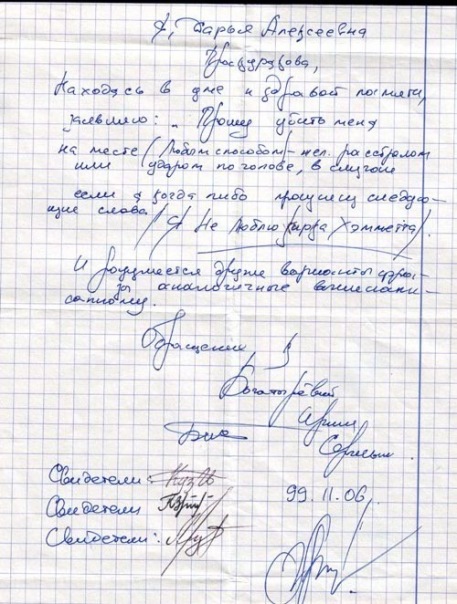 Я, Дарья Алексеевна
Находясь в уме и здравой памяти,
заявляю: „ Прошу убить меня
на месте (Любым способом – жел. расстрелом
или ударом по голове, в случае
если я когда либо произнесу следую-
щие слова: / Я Не Люблю Кирка Хэммета /).
И разумеется другие варианты фра-
зы аналогичные вышеописан-
ному.
Обращение
Свидетели:
Свидетели
Свидетели:
99.11.06.